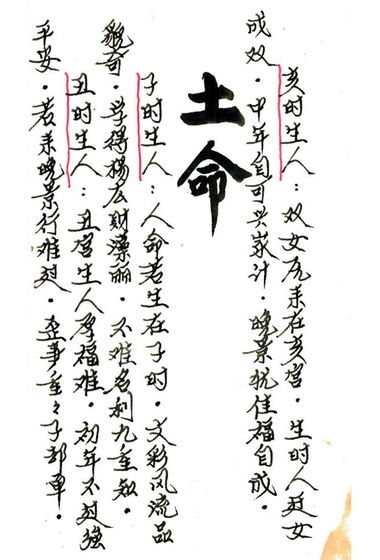 亥时生人：双女原来在亥宫．生时人廷女
成双．中年自可兴家计．晚景犹佳福自成．
土命
子时生人：人命若生在子时．文彩风流品
貌奇．学得杨公财漂丽．不难名利九重知．
丑时生人：丑宫生人厚福难．初年不过强
平安．若来晚景行难过．业事重々子部单．